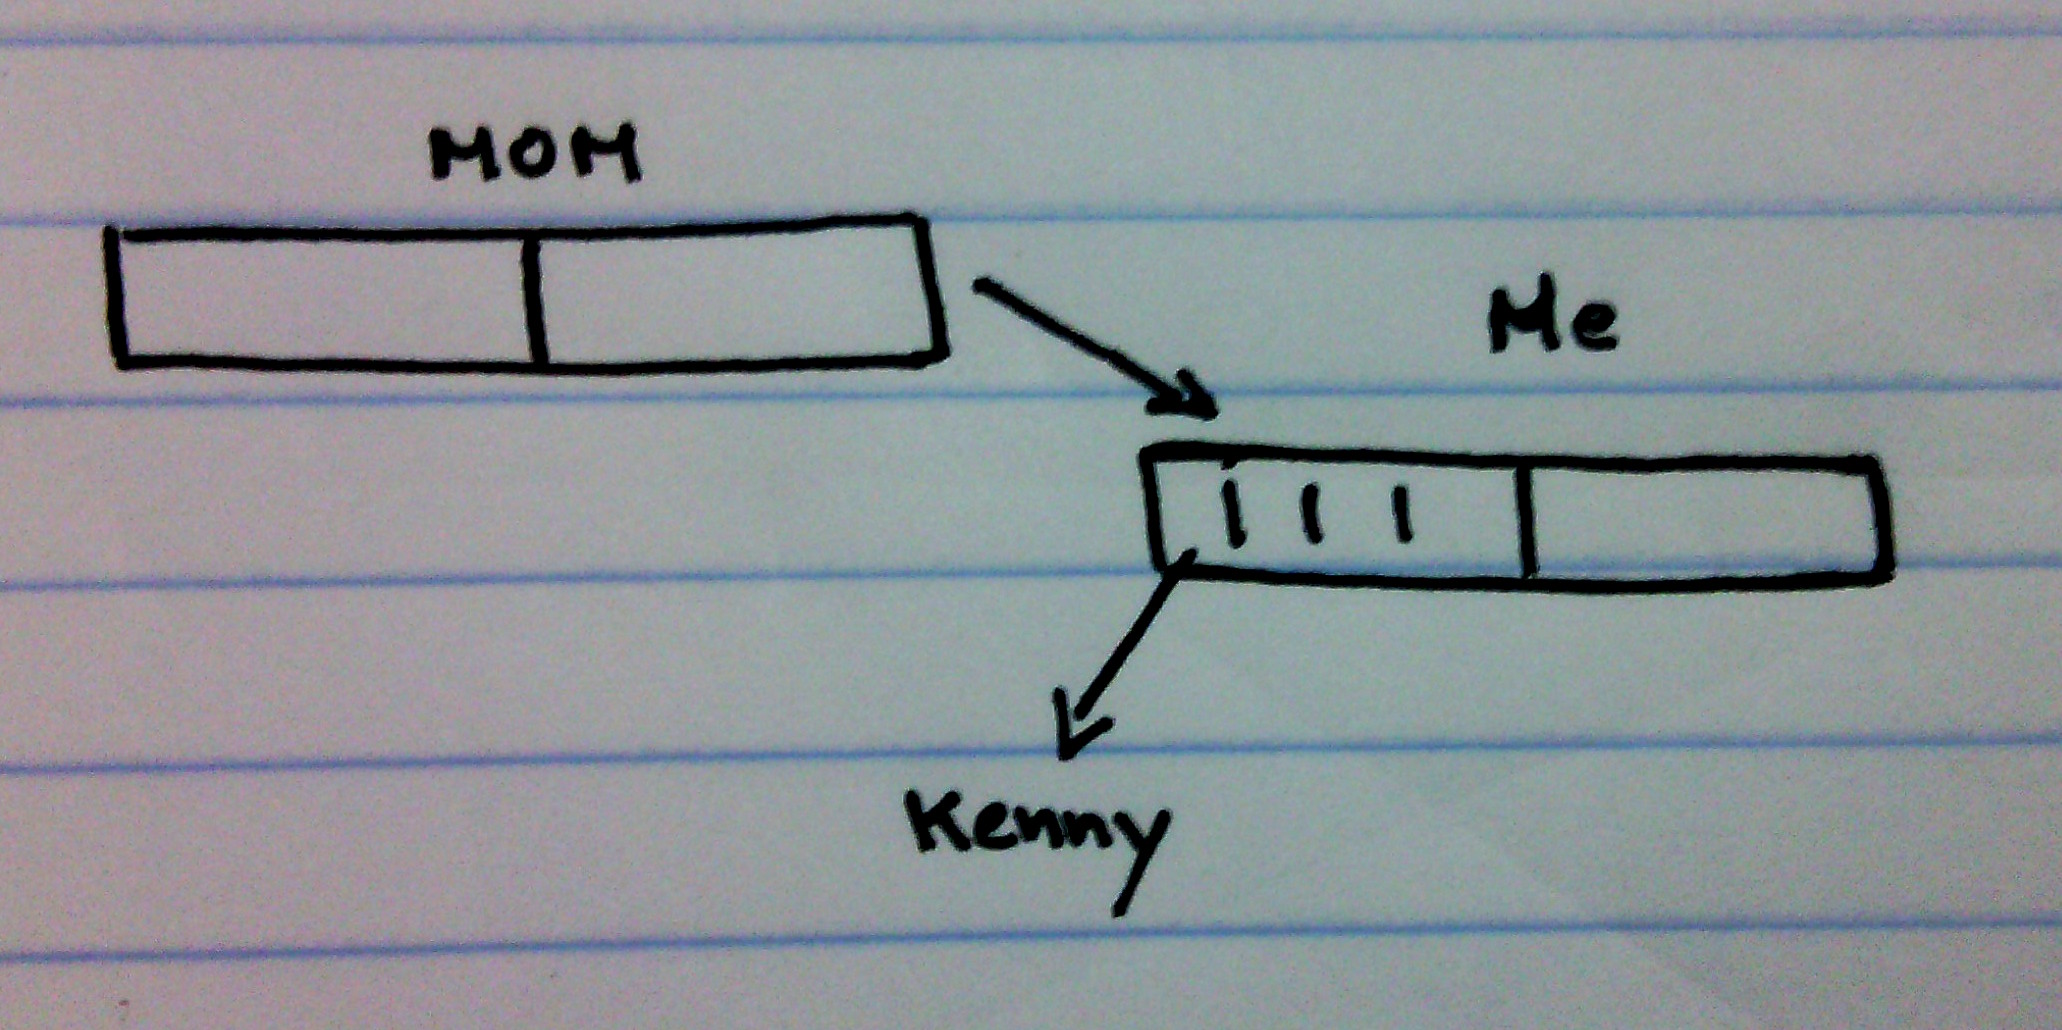 MOM
Me
Kenny